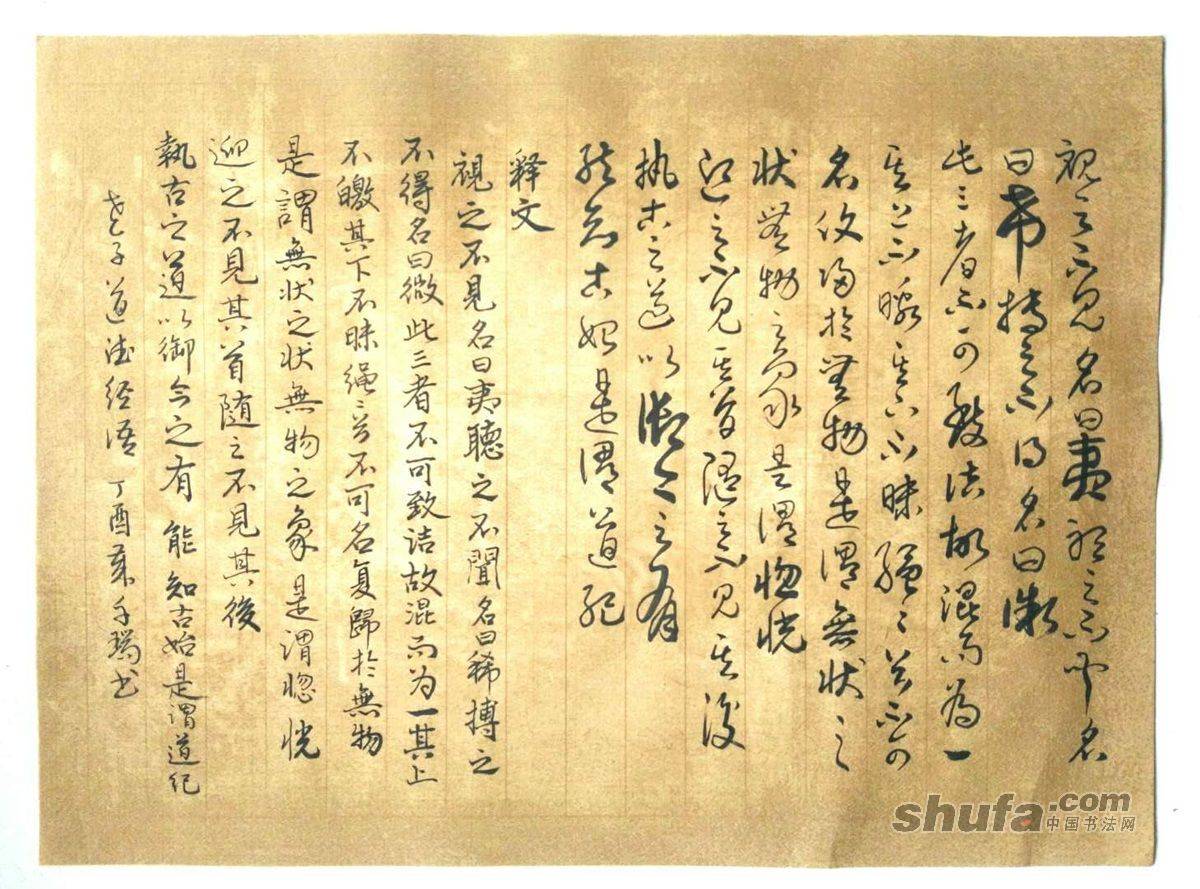 視之不見名曰夷聽之不聞名
曰希搏之不得名曰微
此三者不可致詰故混而為一
其上不皦其下不昧繩〻兮不可
名復歸於無物是謂無状之
状無物之象是謂惚恍
迎之不見其首隨之不見其後
执古之道以御今之有
能知古始是謂道紀
释文
視之不見名曰夷聽之不聞名曰稀搏之
不得名曰微此三者不可致诘故混而为一其上
不皦其下不昧绳〻兮不可名复歸於無物
是謂無状之状無物之象是谓惚恍
迎之不見其首随之不見其後
執古之道以御今之有能知古始是谓道纪
老子道德经语丁酉瑞书
shufa.com
中国书法网